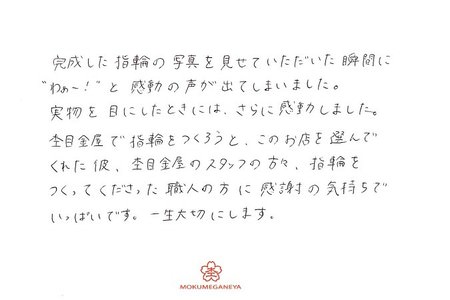 完成した指輪の写真を見せていただいた瞬間に
“わぁ〜!”と感動の声が出てしまいました。
実物を目にしたときには、さらに感動しました。
杢目金屋で指輪をつくろうと、このお店を選んで
くれた彼、杢目金屋のスタッフの方々、指輪を
つくってくださった職人の方に感謝の気持ちで
いっぱいです。一生大切にします。
MOKUMEGANEYA